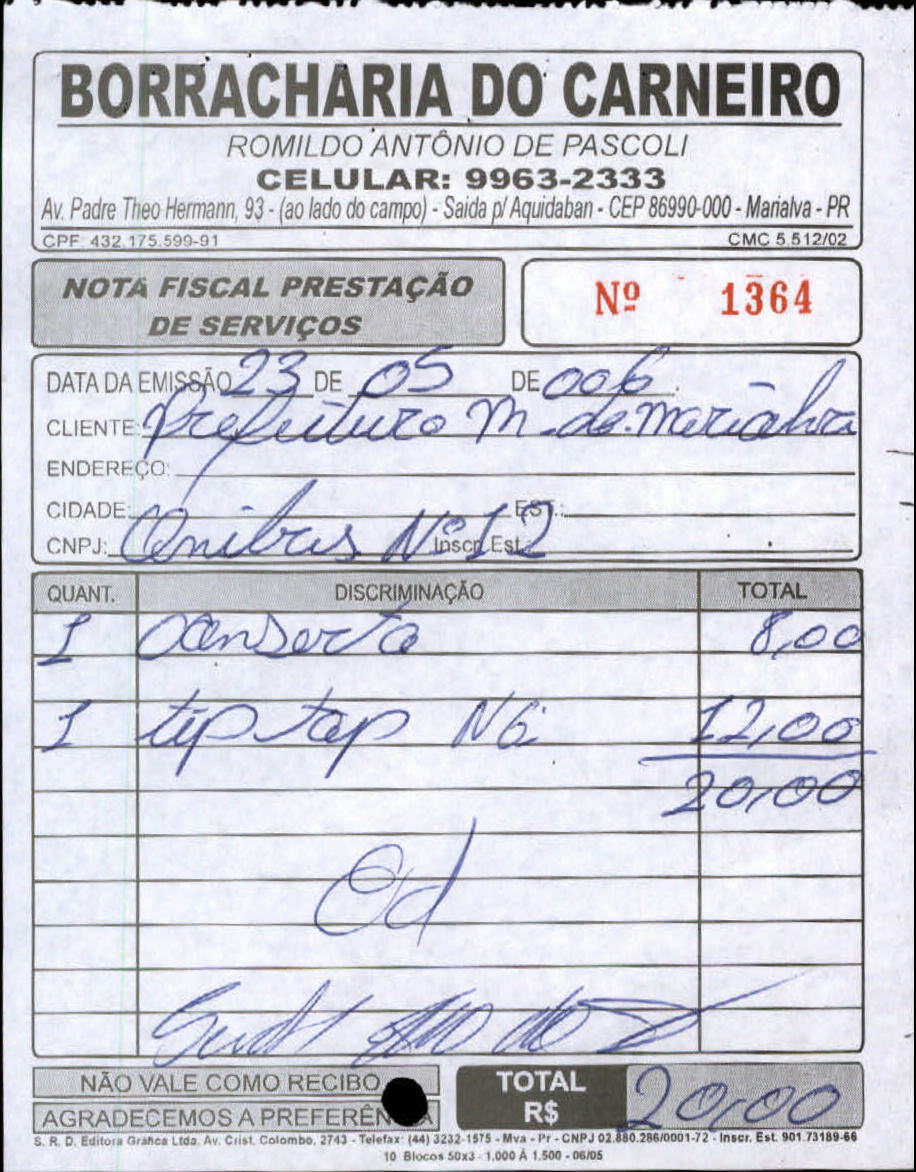 BORRACHARIA DO CARNEIRO
ROMILDO ANTÔNIO DE PASCOLI
CELULAR: 9963-2333
Av. Padre Theo Hermann, 93 - (ao lado do campo) - Saida p/ Aquidaban - CEP 86990-000 - Marialva - PR
CPF: 432.175.599-91 CMC 5.512/02
NOTA FISCAL PRESTAÇÃO
DE SERVIÇOS
Nº 1364
DATA DA EMISSÃO 23 DE 05 DE 006
CLIENTE: Prefeitura M. de. Marialva
ENDEREÇO:
CIDADE: EST.:
CNPJ: Onibus Nº 12 Inscr. Est.:
QUANT. DISCRIMINAÇÃO TOTAL
1 Conserto 8,00
1 tip top N6 12,00
20,00
NÃO VALE COMO RECIBO
AGRADECEMOS A PREFERÊNCIA
TOTAL
R$ 20,00
S. R. D. Editora Gráfica Ltda. Av. Crist. Colombo, 2743 - Telefax: (44) 3232-1575 - Mva - Pr - CNPJ 02.880.286/0001-72 - Inscr. Est. 901.73189-66
10 Blocos 50x3 - 1.000 À 1.500 - 06/05